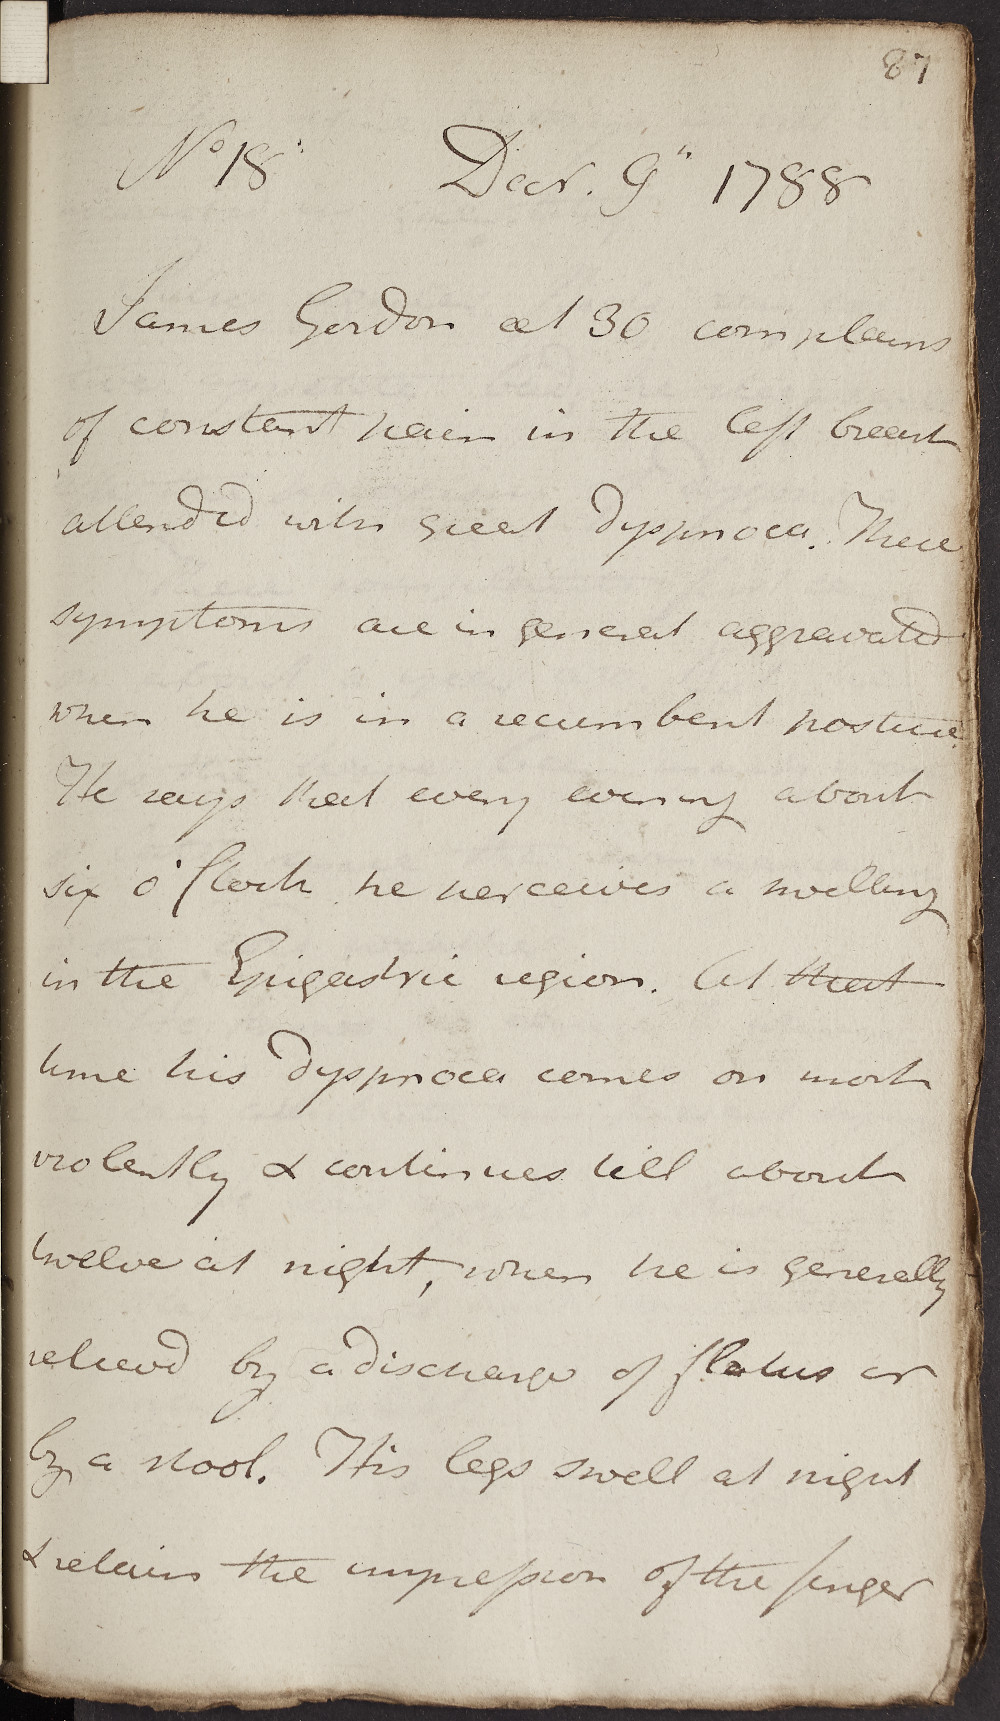 87
No 18. Decr. 9th 1788
James Gordon æt 30 complains
of constant pain in the left breast
attended with great Dyspnoea. These
symptoms are in general aggravated
when he is in a recumbent posture.
He says that every evening about
six o'Clock he perceives a swelling
in the Epigastric region. At that
time his Dyspnoea comes on most
violently & continues till about
twelve at night, when he is generally
relieved by a discharge of flatus or
by a stool. His legs swell at night
& retain the impression of the finger